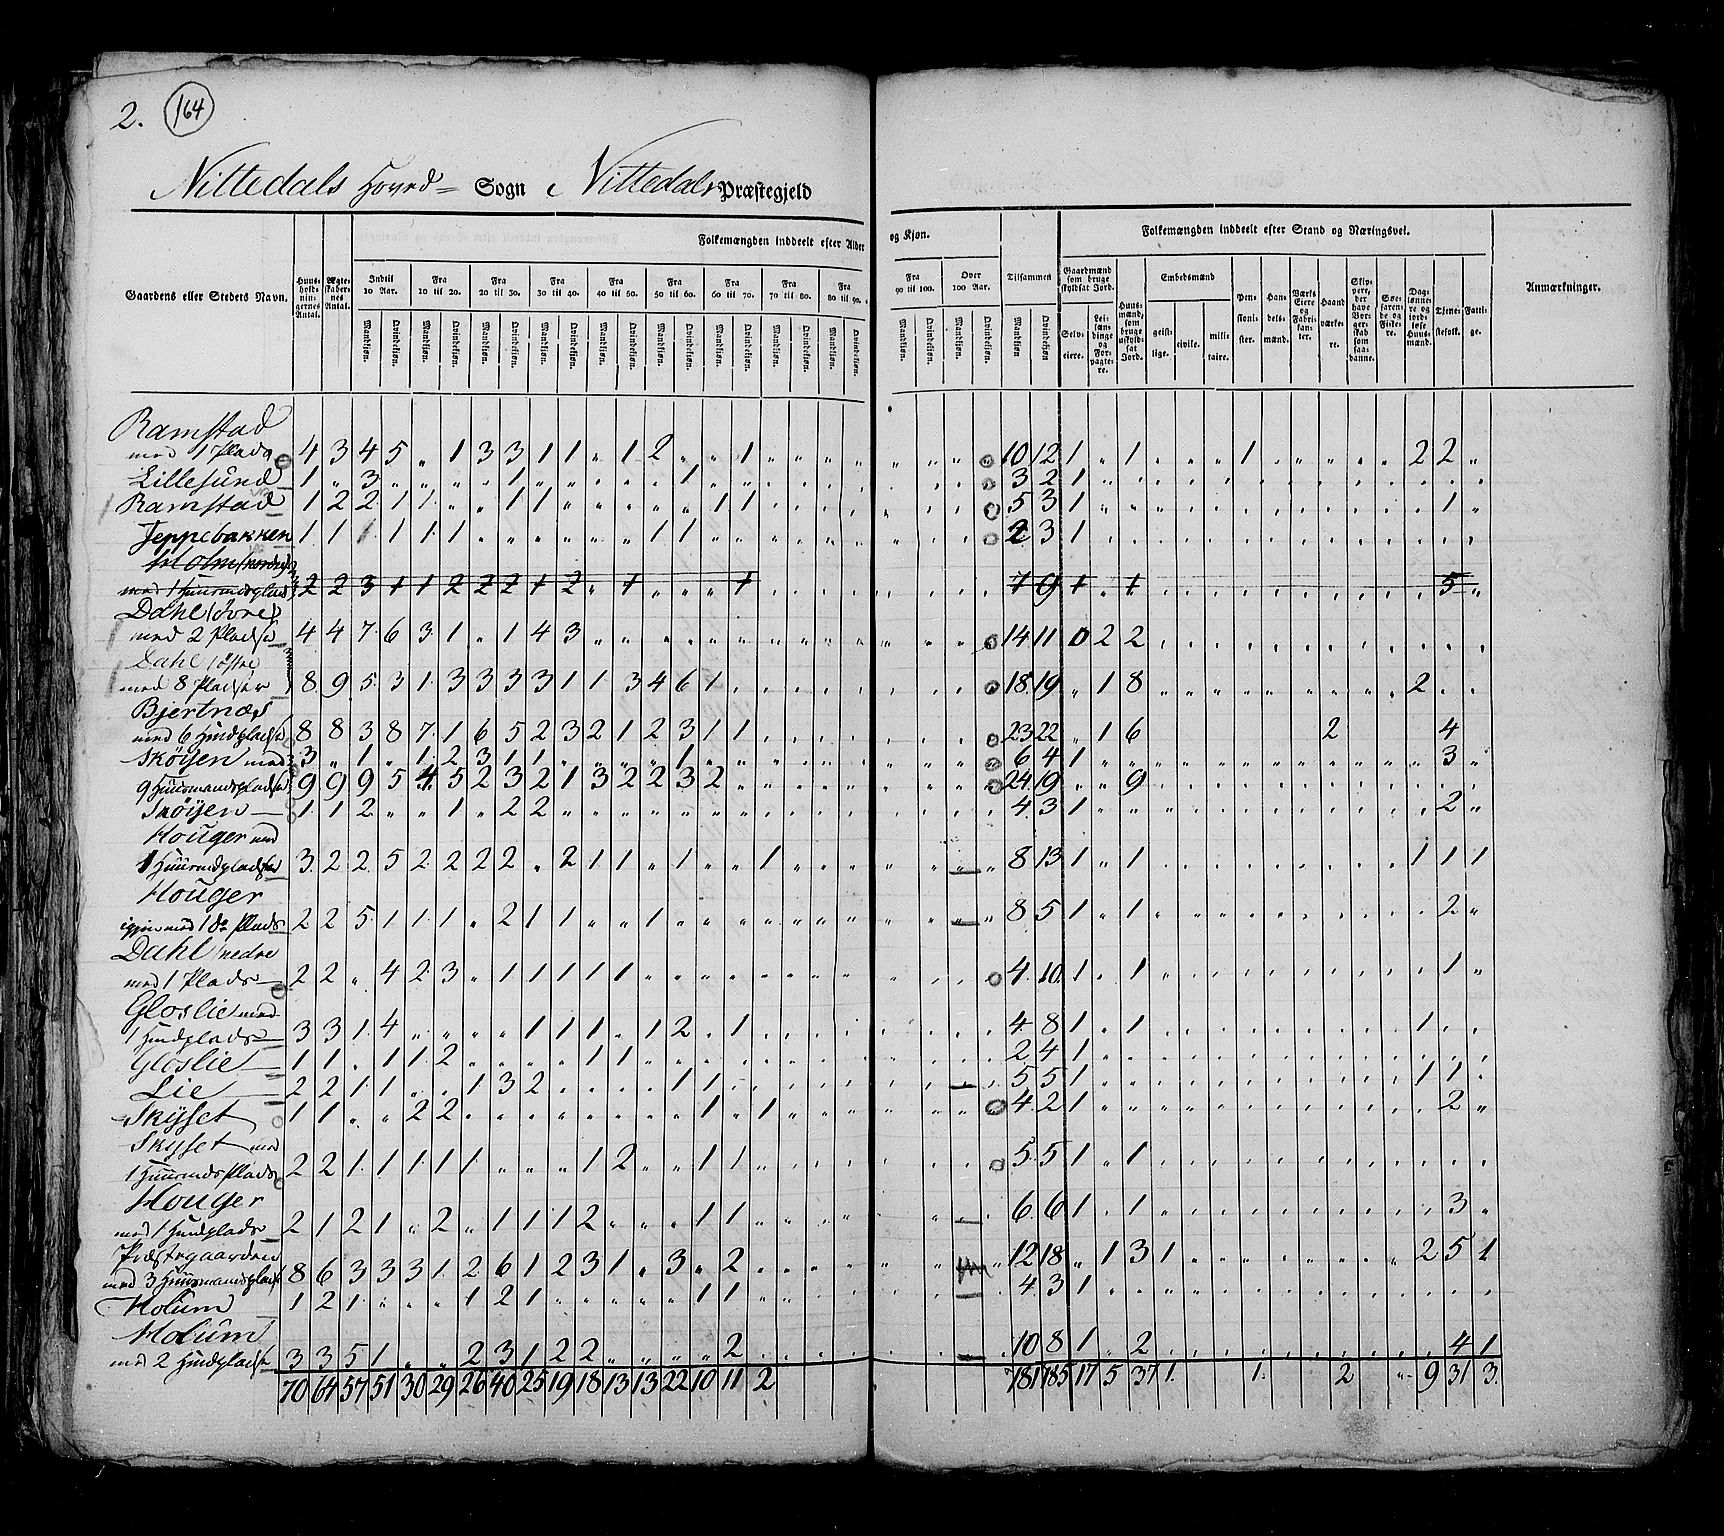 2. 164
Nittedals Hoved= Sogn i Nittedals Præstegjeld
Folkemængden inddeelt efter Alder og Kjøn.
Folkemængden inddeelt efter Stand og Næringsvei.
Gaardens eller Stedets Navn.
Huus-hold-nin-gernes Antal.
Ægte-skaber-nes Antal.
Indtil 10 Aar.
Fra 10 til 20.
Fra 20 til 30.
Fra 30 til 40.
Fra 40 til 50.
Fra 50 til 60.
Fra 60 til 70.
Fra 70 til 80.
Fra 80 til 90.
Fra 90 til 100.
Over 100 Aar.
Tilsammen
Mandkjøn. Qvindekjøn.
Gaardmænd som bruge skyldsat Jord.
Selv-eiere.
Lei-længdinge og For-pagte-re.
Huus-mænd, som bruge uskyld-sat Jord.
Embedsmænd
geist-lige. civile. mili-taire.
Pen-sioni-ster.
Han-dels-mænd.
Værks Eiere og Fabri-kan-ter.
Haand værke-re.
Skip-pere, der have Bor-ger-skab som saa-danne.
Søe-faren-de og Fiske-re.
Dag-lønne-re og jord-løse Huus-mænd.
Tjene-stefolk.
Fatti-ge.
Anmærkninger.
Ramstad
med 1 Plads 4 3 4 5 „ 1 3 3 1 1 „ 1 2 „ „ 1 10 12 1 „ 1 1 2 2 „
Lillesund 1 „ 3 „ „ „ „ 1 „ „ „ „ „ 1 3 2 1
Ramstad 1 2 2 1 1 „ „ 1 1 „ „ „ „ „ 1 1 5 3 1 1 „
Jeppebakken 1 1 1 1 1 1 „ „ „ „ „ „ 1 1 2 3 1
Holm (nordre)
med 1 Huusmdsplads 2 2 3 1 1 2 2 2 1 2 „ 1 „ „ „ 1 7 9 1 „ 1 5 „
Dahl (øvre)
med 2 Pladse 4 4 7 6 3 1 „ 1 4 3 14 11 0 2 2
Dahl (østre
med 8 Pladser 8 9 5 3 1 3 3 3 3 1 1 3 4 6 1 18 19 „ 1 8 2
Bjertnæs
med 6 Hmdspladse 8 8 3 8 7 1 6 5 2 3 2 1 2 3 1 1 23 22 „ 1 6 2 4
Skøyen med 3 „ 1 „ 1 2 3 1 1 „ „ „ „ 1 6 4 1 3 „
9 Huusmandspladse 9 9 9 5 4 5 2 3 2 1 3 2 2 3 2 24 19 „ „ 9
Skøyen 1 1 2 „ „ 1 „ 2 2 4 3 1 2 „
Houger med
1 Huusmdspladse 3 2 2 5 2 2 2 2 „ 2 1 1 „ 1 „ „ 1 8 13 1 „ 1 1 1 1
Houger
igjen med 1 do Plads 2 2 5 1 1 1 „ 2 1 1 „ „ 1 8 5 1 „ 1 2 „
Dahl nedre
med 1 Plads 2 2 „ 4 2 3 „ 1 1 1 1 1 4 10 1 „ 1 1 „
Gloslie med
1 Hmdplads 3 3 1 4 „ „ „ „ 1 1 1 „ 1 2 „ 1 4 8 1 „ 1 1
Gloslie 1 1 „ 1 1 2 „ „ „ „ 1 1 2 4 1
Lie 2 2 1 1 „ „ 1 3 2 „ „ „ „ 1 1 5 5 1 1 1
Skysset 1 1 „ „ 2 2 „ „ „ „ „ „ „ „ 1 „ 1 4 2 1 2 „
Skysset med
1 Huusmds Plads 2 2 1 1 1 1 1 „ „ „ 1 2 „ „ 1 1 5 5 1 „ 1
Houger
med 1 Hmdplads 2 1 2 1 „ 2 „ 1 1 1 2 „ „ „ 1 1 6 6 1 „ 1 3 „
Præstegaarden
med 3 Huusmandsplads 8 6 3 3 3 1 2 6 1 2 3 1 „ 3 „ 2 12 18 „ 1 3 1 2 5 1
Holum 1 2 1 „ „ „ 1 2 1 „ „ „ „ „ 1 1 4 3 1
Holum
med 2 Hmdpladse 3 3 5 1 „ „ 2 3 1 2 2 „ „ „ „ 2 10 8 1 „ 2 4 1
70 64 57 51 30 29 26 40 25 19 18 13 13 22 10 11 2 181 185 17 5 37 1 1 2 9 31 3